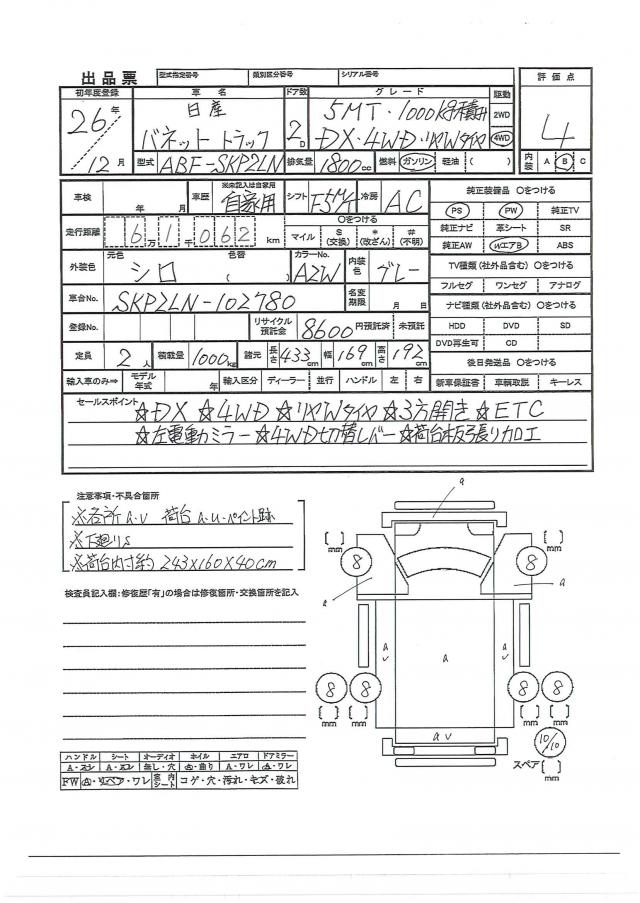 出品票 型式指定番号 類別区分番号 シリアル番号
初年度登録 車名 ドア数 グレード 駆動 評価点
26年 日産 2D 5MT・1000kg積み 2WD 4
12月 バネットトラック DX・4WD・リヤWタイヤ 4WD
型式 ABF-SKP2LN 排気量 1800cc 燃料 ガソリン 軽油 ( ) 内装 A B C
車検 年 月 車歴 ※未記入は自家用 自家用 シフト F5M/T 冷房 AC 純正装備品 〇をつける
走行距離 6万1千062km 〇をつける PS PW 純正TV
マイル $(交換) *(改ざん) #(不明) 純正ナビ 革シート SR
外装色 元色 シロ 色替 ( ) カラーNo. A2W 内装色 グレー 純正AW WエアB ABS
TV種類(社外品含む) 〇をつける
車台No. SKP2LN-102780 名変期限 月 日 フルセグ ワンセグ アナログ
ナビ種類(社外品含む) 〇をつける
登録No. リサイクル預託金 8600円預託済 未預託 HDD DVD SD
DVD再生可 CD
定員 2人 積載量 1000kg 諸元 長さ433cm 幅169cm 高さ192cm 後日発送品 〇をつける
輸入車のみ⇒ モデル年式 年 輸入区分 ディーラー 並行 ハンドル 左 右 新車保証書 車輌取説 キーレス
セールスポイント ☆DX ☆4WD ☆リヤWタイヤ ☆3方開き ☆ETC
☆左電動ミラー ☆4WD切替レバー ☆荷台板張り加工
注意事項・不具合箇所
※各所A.U 荷台A.U.ペイント跡
※下廻りS
※荷台内寸約243×160×40cm
検査員記入欄:修復歴「有」の場合は修復箇所・交換箇所を記入
a
[ ] mm 8 8 [ ] mm
a a
a v a a v
8 8 8 8
[ ] mm [ ] mm [ ] mm [ ] mm
a v 10/10
スペア [ ] mm
ハンドル シート オーディオ ホイル エアロ ドアミラー
A・スレ A・スレ 無し・穴 A・曲り A・ワレ A・ワレ
FW A・リペア・ワレ 室内シート コゲ・穴・汚れ・キズ・破れ